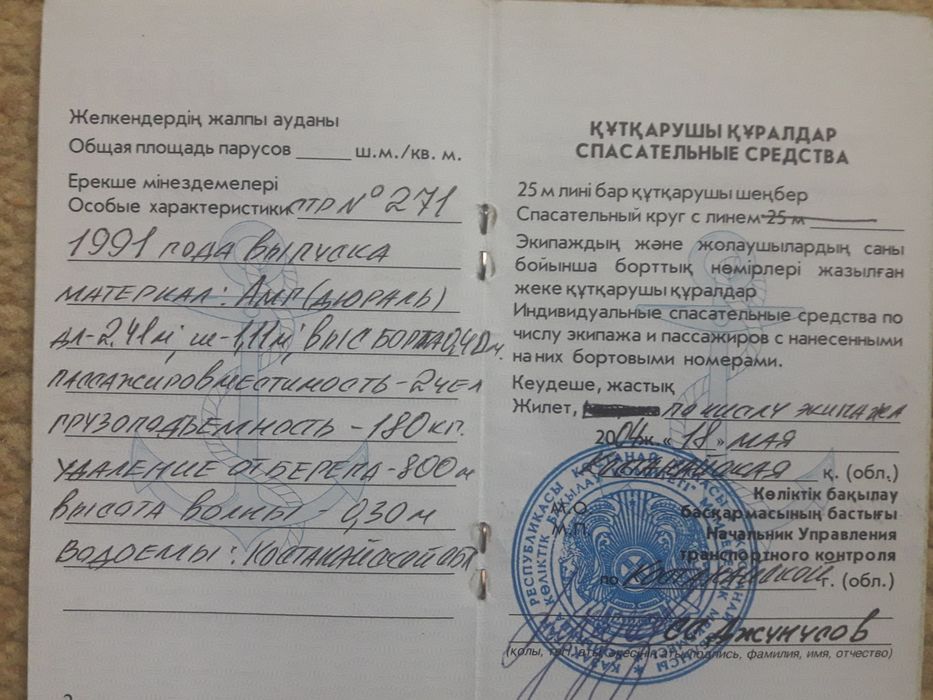 Желкендердің жалпы ауданы
Общая площадь парусов _____ ш.м./кв. м.
Ерекше мінездемелері
Особые характеристики СТР № 271
1991 года выпуска
МАТЕРИАЛ: АМГ (ДЮРАЛЬ)
дл-2,41м, ш-1,11м, ВЫС БОРТА 0,40м.
ПАССАЖИРОВМЕСТИМОСТЬ-2 ЧЕЛ
ГРУЗОПОДЪЕМНОСТЬ-180 КГ.
УДАЛЕНИЕ ОТ БЕРЕГА-800 м
ВЫСОТА ВОЛНЫ - 0,30 м
ВОДОЕМЫ: КОСТАНАЙСКОЙ ОБЛ
ҚҰТҚАРУШЫ ҚҰРАЛДАР
СПАСАТЕЛЬНЫЕ СРЕДСТВА
25 м лині бар құтқарушы шеңбер
Спасательный круг с линем 25 м
Экипаждың және жолаушылардың саны
бойынша борттық нөмірлері жазылған
жеке құтқарушы құралдар
Индивидуальные спасательные средства по
числу экипажа и пассажиров с нанесенными
на них бортовыми номерами.
Кеудеше, жастық
Жилет, по числу экипажа
2004ж. «18» мая
Костанайская қ. (обл.)
Көліктік бақылау
басқармасының бастығы
М.О.
М.П.
Начальник Управления
транспортного контроля
по Костанайской г. (обл.)
Джунусов
(қолы, тегі, аты, әкесінің аты/подпись, фамилия, имя, отчество)